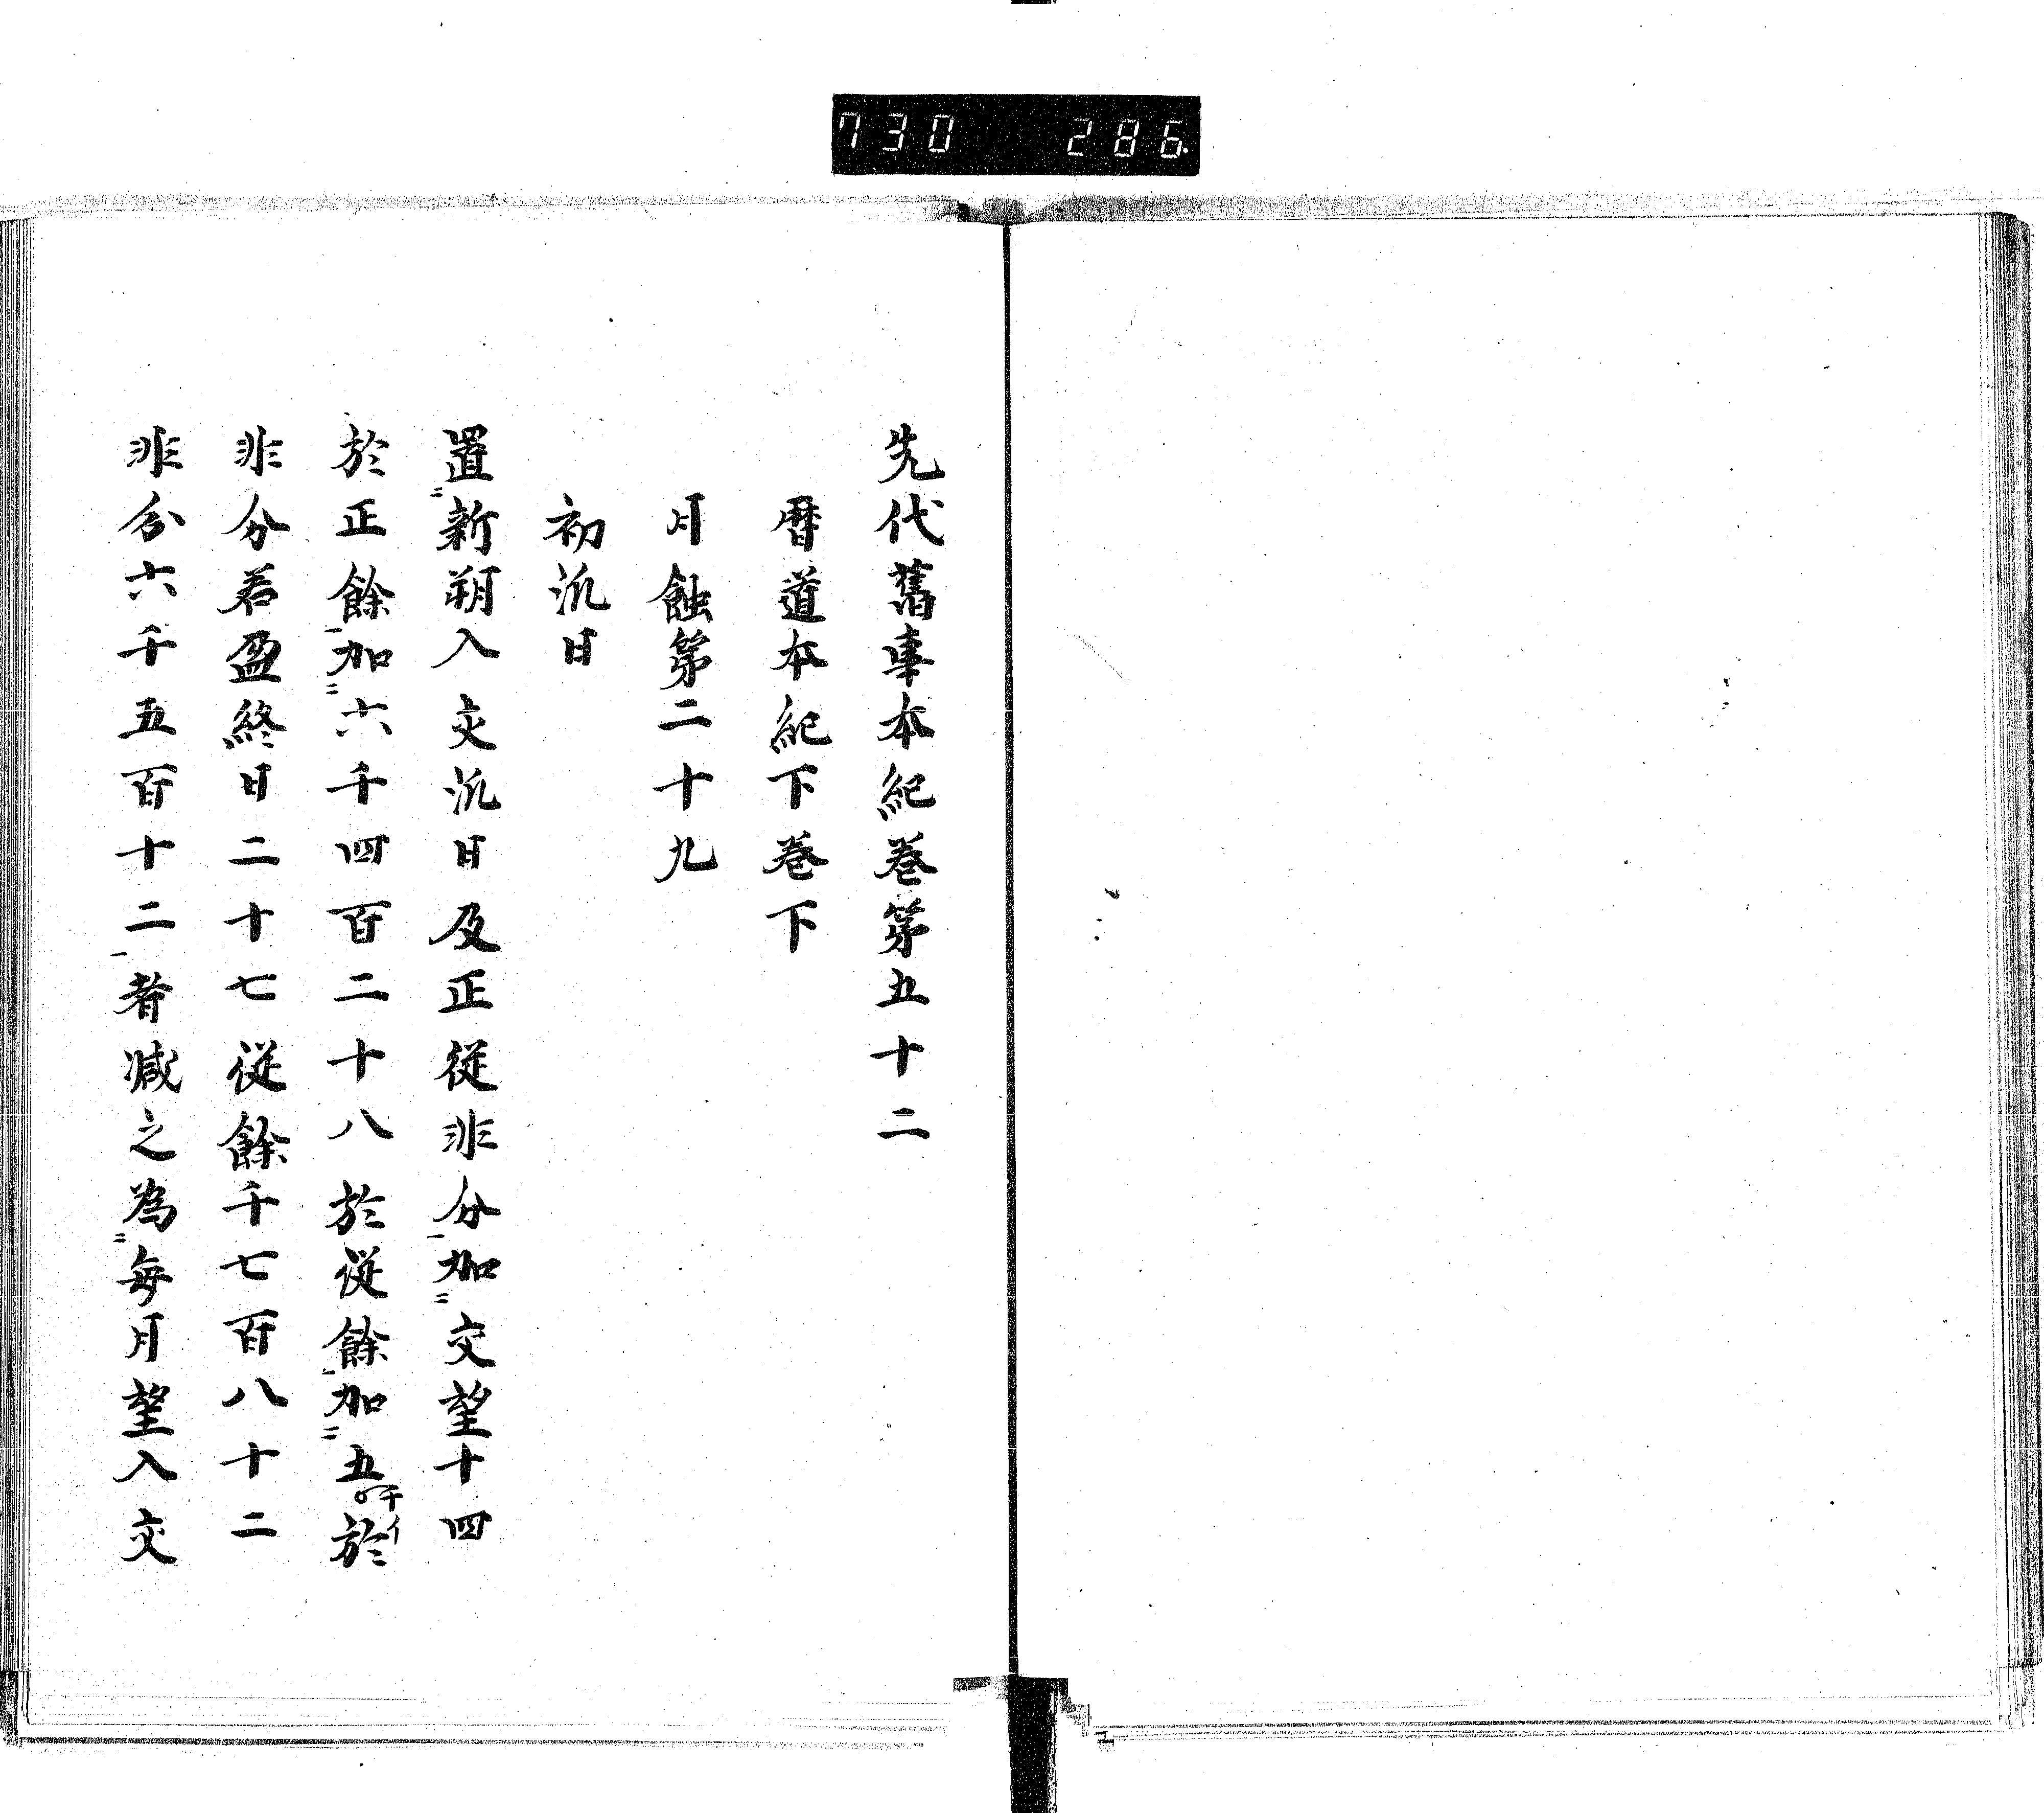 730 286
先代舊事本紀巻第五十二
暦道本紀下巻下
月蝕第二十九
初汎日
置二新朔入交汎日及正従非分一加二交望十四
於正餘一加二六千四百二十八於従餘一加二五千イ於
非分若盈終日二十七従餘千七百八十二
非分六千五百十二一者減之為二毎月望入交